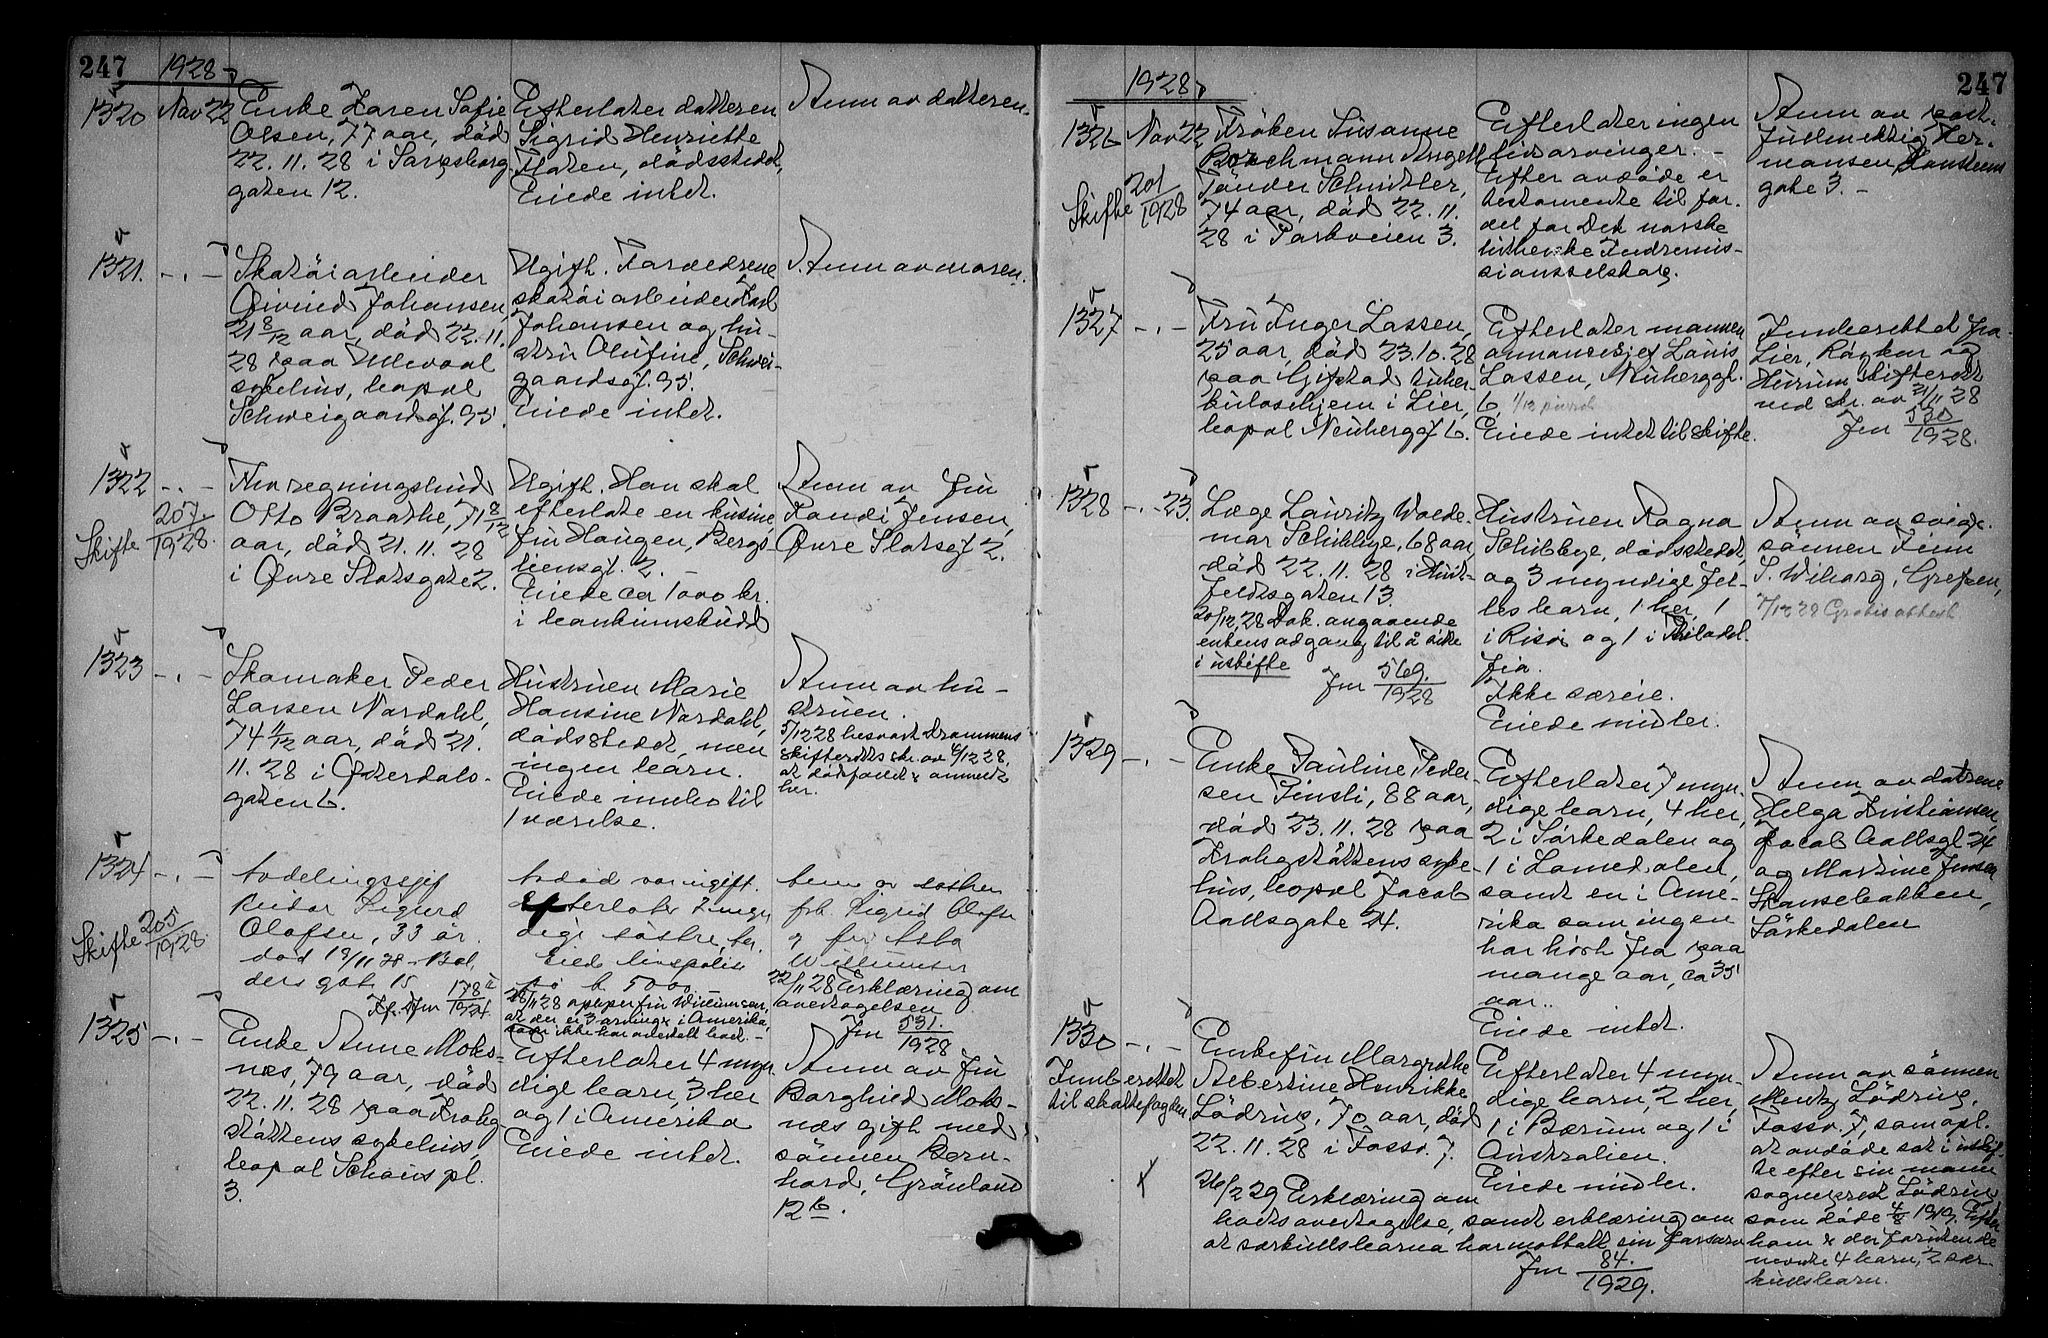 247 1928
1320 Nov 22 Enke Karen Sofie
Olsen, 77 aar, död
22. 11. 28 i Sarpsborg
gaten 12.
Efterlater datteren
Sigrid Henriette
Floten, dödsstedet,
Eiede intet.
Anm av datteren.
1321. -.-
Skotöiarbeider
Öivind Johansen,
21 8/12 aar, död 22. 11.
28 paa Ullevaal
sykehus, bopæl
Schweigaardsgt. 95.
Ugift. Forældrene
skotöiarbeider Karl
Johansen og hu-
stru Olufine, Schwei-
gaardsgt. 95.
Eiede intet.
Anm av moren.
1322 -.-
Skifte 207/1928.
Forregningsbud
Otto Braathe, 71 8/12
aar, död 21. 11. 28
i Övre Slotsgate 2.
Ugift. Han skal
efterlate en kusine
fru Haugen, Bergs-
liensgt. 2. -
Eiede ca 1000 kr.
i bankinnskudd
Anm av fru
Randi Jensen,
Övre Slotsgt 2.
1323 -.-
Skomaker Peder
Larsen Nordahl,
74 11/12 aar, död 21.
11. 28 i Österdals-
gaten 6.
Hustruen Marie
Hansine Nordahl,
dödsstedet, men
ingen barn.
Eiede innbo til
1 værelse.
Anm av hu-
struen.
5/12 28 besvart Drammens
skifteretts skr. av 4/12 28,
at dödsfallet er anmeldt
her.
1324 -.-
Skifte 205/1928.
Avdelingssjef
Reidar Sigurd
Olafsen, 33 år
död 18/11 28 - Bal-
ders gate 15
Kfr. Jnr 178a/1924.
Avdöde var ugift.
Efterlater 2 myn
dige söstre, her.
Eiede livspolise
på kr 5000
26/11 28 opgir fru Willumsen,
at der er 3 arvinger i Amerika,
som ikke har avertert bort. -
Anm av søstren
frk. Sigrid Olafsen
og fru Asta
Willumsen
22/11 28 Erklæring om
overtagelsen
Jnr 531./1928
1325 -.-
Enke Anne Moks-
næs, 79 aar, död
22. 11. 28 paa Krohg
stöttens sykehus,
bopæl Schous pl.
3.
Efterlater 4 myn
dige barn, 3 her
og 1 i Amerika
Eiede intet.
Anm av fru
Borghild Moks-
næs gift med
sönnen Bern-
hard, Grönland
12 b.
1928. 247
1326 Nov 22
Skifte 201/1928
Fröken Susanne
Borchmann Angell
Tönder Schnitler,
74 aar, död 22. 11.
28 i Parkveien 3.
Efterlater ingen
livsarvinger. -
Efter avdöde er
testamente til for-
del for Det norske
lutherske Indremis-
sionsselskap.
Anm av post-
fullmektig Her-
mansen, Hansteens
gate 3. -
1327 -.-
Fru Inger Lassen,
25 aar, död 23. 10. 28
paa Gifstad tuber-
kulosehjem i Lier,
bopæl Neuberggt 6.
Efterlater mannen
annonsesjef Louis
Lassen, Neuberggt.
6.
Eiede intet til skifte.
Innberettet fra
Lier, Röyken og
Hurum skifterett
ved skr. av 21/11 28
Jnr 530/1928.
1328 -.-23.
Læge Lauritz Wolde-
mar Schibbye, 68 aar,
död 22. 11. 28 i Huit-
feldtsgaten 13
20/12 28 Dok. angaaende
enkens adgang til å sitte
i uskifte
Jnr 569./1928
Hustruen Ragna
Schibbye, dödsstedet,
og 3 myndige fel-
les barn, 1 her, 1
i Risör og 1 i Philadel-
fia.
Ikke særeie.
Eiede midler.
Anm av sviger-
sönnen Finn
S. Wiborg, Grefsen,
7/12 28 Gratis attest
1329 -.-
Enke Pauline Peder-
sen Finsli, 88 aar,
död 23. 11. 28 paa
Krohgstöttens syke-
hus, bopæl Jacob
Aallsgate 24.
Efterlater 7 myn-
dige barn, 4 her,
2 i Sörkedalen og
1 i Lomedalen,
samt en i Ame-
rika som ingen
har hört fra paa
mange aar, ca 35
aar..
Eiede intet.
Anm av döttrene
Helga Kristiansen,
Jacob Aallsgt 24
og Martine Jensen
Skansebakken,
Sörkedalen
1330 -.-
Innberettet
til skattefogden
Enkefru Margrethe
Albertine Henrikke
Lödrup, 70 aar, död
22. 11. 28 i Fossv. 7.
Efterlater 4 myn-
dige barn, 2 her,
1 i Bærum og 1 i
Australien.
Eiede midler.
26/2 29 Erklæring om
boets overtagelse, samt erklæring om
at særkullsbarna har mottatt sin farsarv
Jnr 84./1929.
Anm av sönnen
Mentz Lödrup,
Fossv. 7, som opl.
at avdöde sat i uskif-
te efter sin mann
sogneprest Lödrup
som döde 4/8 1919. Efter
ham er der foruten de
nevnte 4 barn, 2 sær-
kullsbarn.